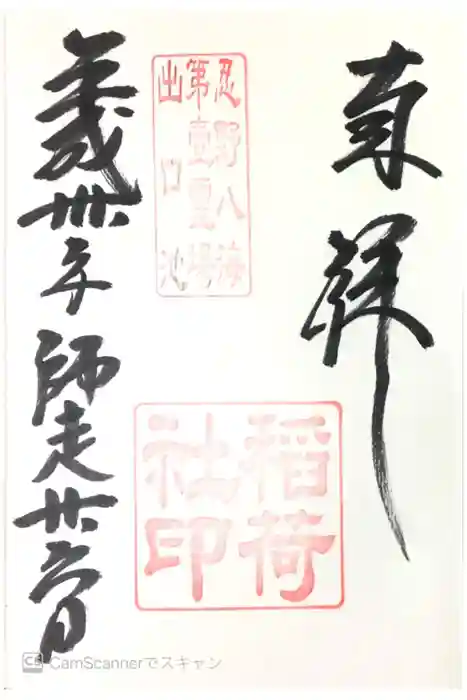 奉拝
忍野八海
第壹霊場
出口池
稲荷
社印
平成卅年 師走廿日
CS CamScannerでスキャン